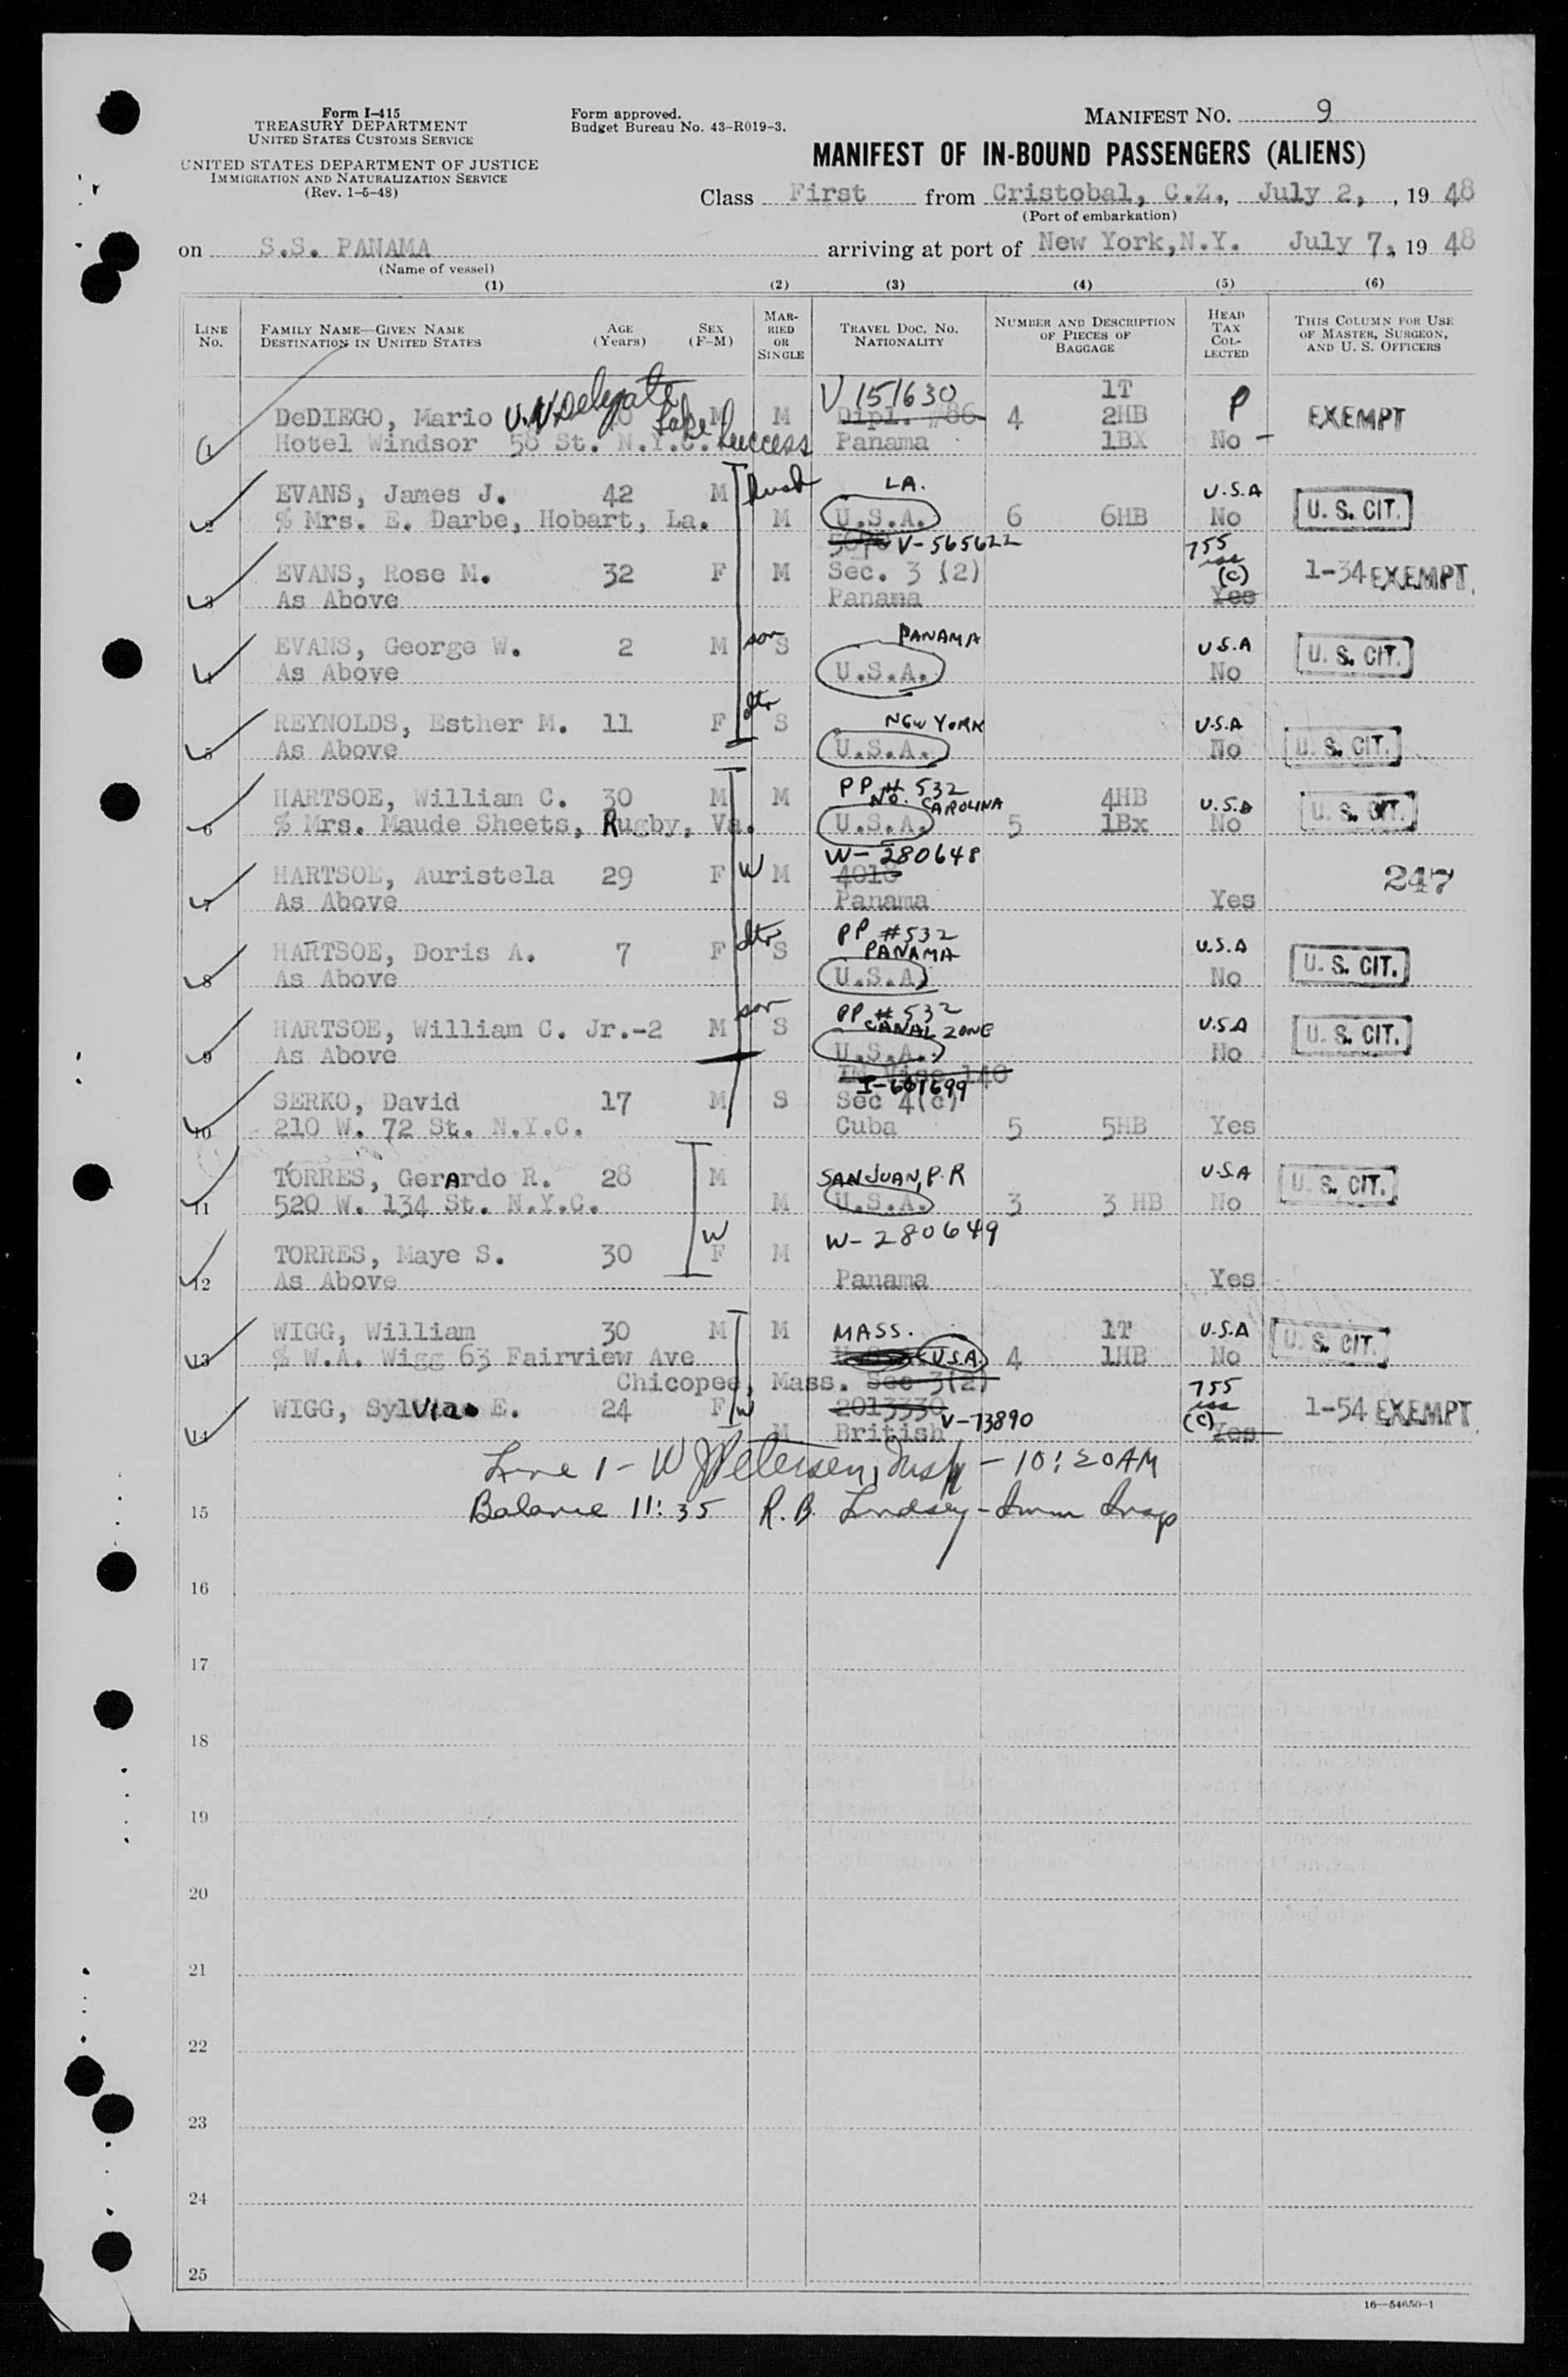 Form I-415
TREASURY DEPARTMENT
UNITED STATES CUSTOMS SERVICE
UNITED STATES DEPARTMENT OF JUSTICE
IMMIGRATION AND NATURALIZATION SERVICE
(Rev. 1-6-48)
Form approved.
Budget Bureau No. 43-R019-3.
MANIFEST NO. 9
MANIFEST OF IN-BOUND PASSENGERS (ALIENS)
Class First from Cristobal, C.Z., July 2, , 19 48
(Port of embarkation)
on S.S. PANAMA arriving at port of New York, N.Y. July 7, 19 48
(Name of vessel)
(1) (2) (3) (4) (5) (6)
LINE No. FAMILY NAME—GIVEN NAME DESTINATION IN UNITED STATES AGE (Years) SEX (F-M) MARRIED OR SINGLE TRAVEL DOC. NO. NATIONALITY NUMBER AND DESCRIPTION OF PIECES OF BAGGAGE HEAD TAX COLLECTED THIS COLUMN FOR USE OF MASTER, SURGEON, AND U. S. OFFICERS
V 151630 1T
1 DeDIEGO, Mario U.N. Delegate M M Dipl. #86 4 2HB P EXEMPT
Hotel Windsor 58 St. N.Y.C. Lake Success Panama 1BX No -
EVANS, James J. 42 M husb LA. U.S.A
2 % Mrs. E. Darbe, Hobart, La. M U.S.A. 6 6HB No U. S. CIT.
V-565622 755
EVANS, Rose M. 32 F M Sec. 3 (2) (c) 1-34 EXEMPT
3 As Above Panama Yes
EVANS, George W. 2 M son S PANAMA U.S.A U. S. CIT.
4 As Above U.S.A. No
REYNOLDS, Esther M. 11 F dtr S NEW YORK U.S.A
5 As Above U.S.A. No U. S. CIT.
PP # 532
HARTSOE, William C. 30 M M NO. CAROLINA 4HB U.S.A U. S. CIT.
6 % Mrs. Maude Sheets, Rugby, Va. U.S.A. 5 1Bx No
W-280648
HARTSOE, Auristela 29 F W M 4018 247
7 As Above Panama Yes
PP #532
HARTSOE, Doris A. 7 F dtr S PANAMA U.S.A U. S. CIT.
8 As Above U.S.A No
PP # 532
HARTSOE, William C. Jr.-2 M son S CANAL ZONE U.S.A U. S. CIT.
9 As Above U.S.A. No
IM Vise 140
SERKO, David 17 M S Sec 4(c)
10 210 W. 72 St. N.Y.C. Cuba 5 5HB Yes
TORRES, Gerardo R. 28 M SAN JUAN, P.R U.S.A U. S. CIT.
11 520 W. 134 St. N.Y.C. M U.S.A. 3 3 HB No
W-280649
TORRES, Maye S. 30 W F M
12 As Above Panama Yes
WIGG, William 30 M M MASS. 1T U.S.A U. S. CIT.
13 % W.A. Wigg 63 Fairview Ave U.S.A. 4 1HB No
Chicopee, Mass. Sec 3(2) 755
14 WIGG, Sylvia E. 24 F W 2013330 V-73890 (c) 1-54 EXEMPT
M British Yes
Line 1 - W J Petersen, Insp - 10:20 AM
15 Balance 11:35 R.B. Lindsey - Imm Insp
16
17
18
19
20
21
22
23
24
25
16—54650-1